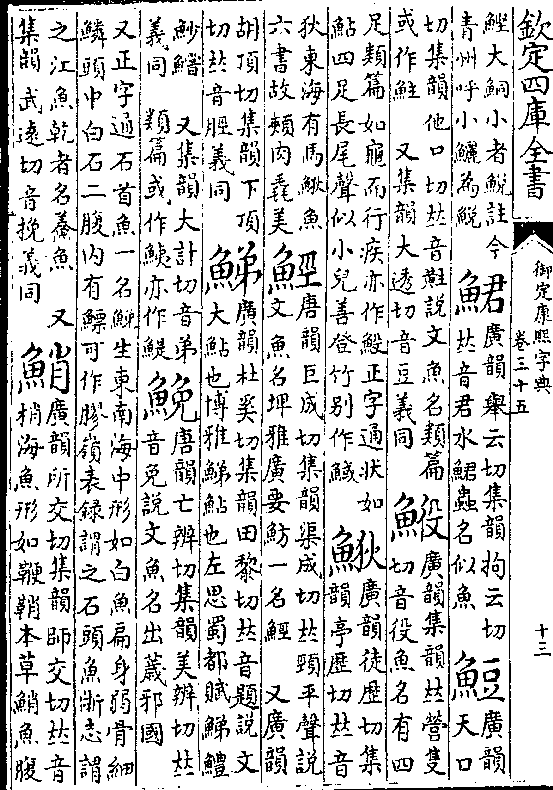 欽定四庫全書
御定康熙字典
卷三十五
十三
鰹大鮦小者鮵註今
青州呼小鱺為鮵
鮶
廣韻舉云切集韻拘云切
𠀤音君水鮶蟲名似魚
䱏
廣韻
天口
切集韻他口切𠀤音黈說文魚名類篇
或作鮏 又集韻大透切音豆義同
廣韻集韻𠀤營隻
切音役魚名有四
足類篇如龜而行疾亦作 正字通狀如
鮎四足長尾聲似小兒善登竹別作
廣韻徒歷切集
韻亭歷切𠀤音
狄東海有馬 魚
六書故頰肉彘美
唐韻巨成切集韻渠成切𠀤頸平聲說
文魚名埤雅廣要魴一名 又廣韻
胡頂切集韻下頂
切𠀤音脛義同
鮷
廣韻杜奚切集韻田黎切𠀤音題說文
大鮎也博雅鮷鮎也左思蜀都賦鮷鱧
魦鱨 又集韻大計切音弟
義同 類篇或作鮧亦作鯷
鮸
唐韻亡辨切集韻美辨切𠀤
音免說文魚名出薉邪國
又正字通石首魚一名鮸生東南海中形如白魚扁身弱骨細
鱗頭中白石二腹內有鰾可作膠嶺表錄謂之石頭魚浙志謂
之江魚乾者名鯗魚 又
集韻武遠切音挽義同
鮹
廣韻所交切集韻師交切𠀤音
梢海魚形如鞭鞘本草鮹魚腹